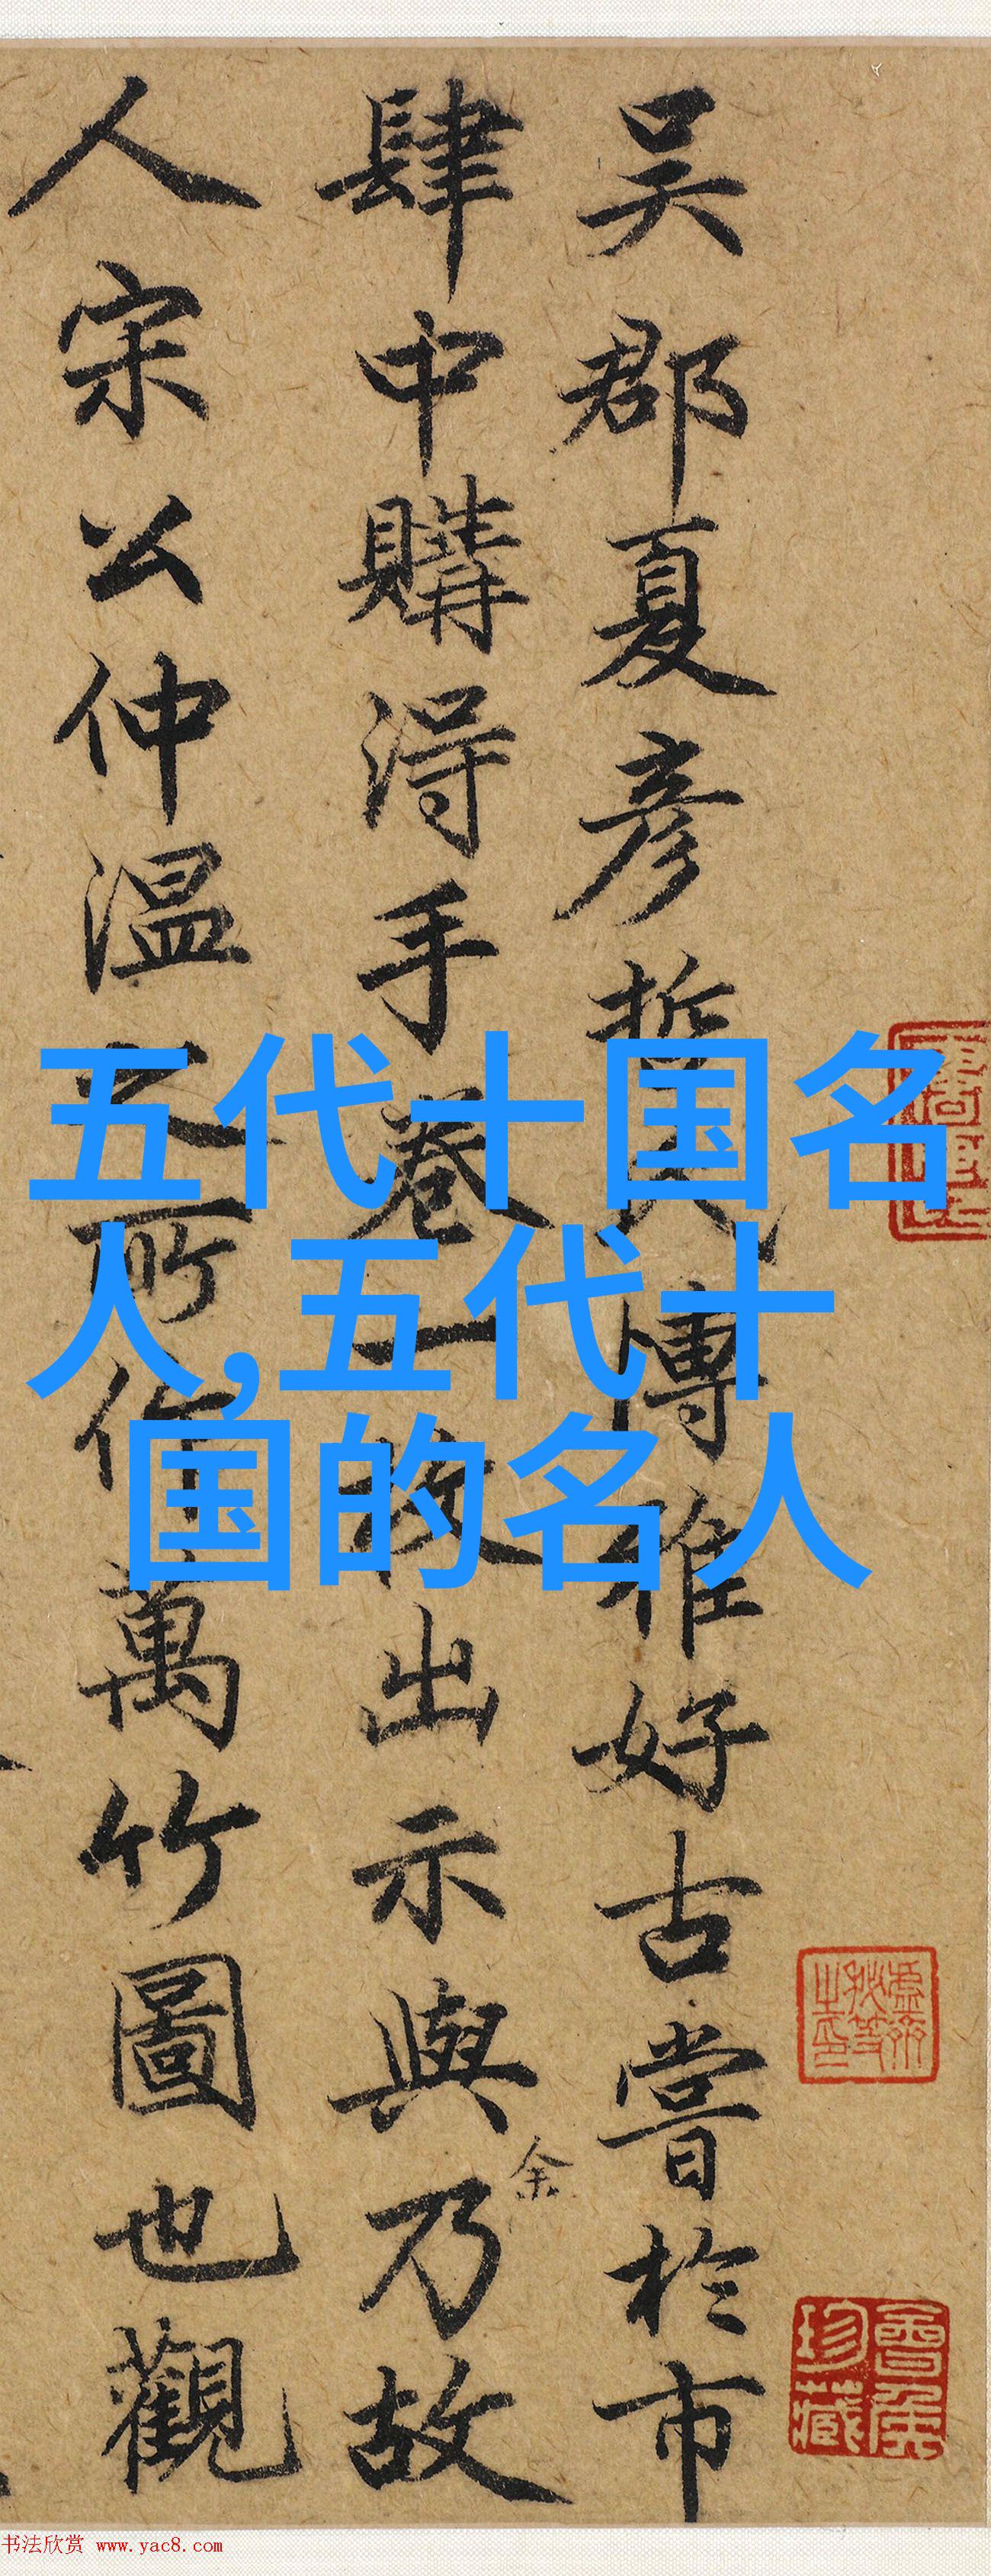 吴郡夏彦哲氏博雅好古嘗於市
肆中購得手卷一枚出示與乃故
余
人宋公仲温之所作萬竹圖也觀
五代十国名
人,五代十
国的名人
珍藏
书法欣赏 www.yac8.com